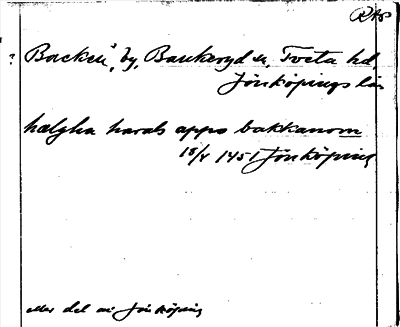 ? Backen, by, Bankeryd sn, Tveta hd,
Jönköpings län
hælgha harals appo bakkanom
18/4 1451 Jönköping
eller del av Jönköping